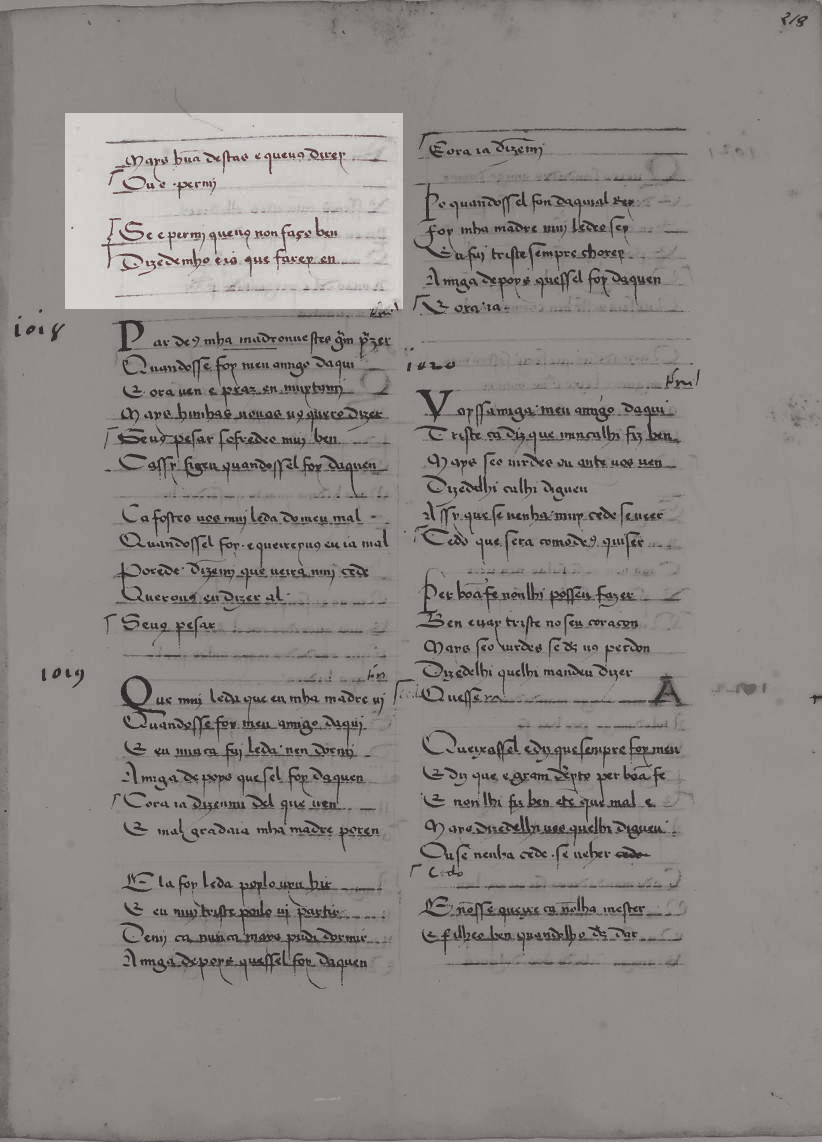 218
Mays hũa destas e queuꝯ direy
Ou e · permj
Se e permj queuꝯ non faço ben
Dizedemho e io que farey en
1018
Par deꝯ mha madronuestro gm̃ pz̃er
Quandosse foy meu amigo daqui
E ora uen e praz en muytomj
Mays hunhas nouas uꝯ quero dizer
Seuꝯ pesar sofredeo muj ben
Cassy figeu quandossel foy daquen
Ca fostes uos muj leda domeu mal
Quandossel foy · e queireyuꝯ eu ia mal
Porede dizemj que ueira muj cede
Querouꝯ eu dizer al
Seuꝯ pesar
1019
Que muj leda que eu mha madre uj
Quandosse foy meu amigo daqui
E eu nunca fuj leda nen dormj
Amiga depoys que sel foy daquen
Cora ia dizenmi del que uen
E mal gradaia mha madre poren
Ela foy leda poylo uyu hir
E eu muj triste poylo uj partir
Demj ca nunca mays pudi dormir
Amiga depoys quessel foy daquen
E ora ia dizemj
Pe quandossel fon daquial rey
foy mha madre muj ledo sey
E eu fuj triste sempre chorey
Amiga depoys quessel foy daquen
E ora · ia ·
1020
Voyssamiga meu amigo daqui
Triste ca diz que nuncalhi fiz ben
Mays seo uirdes ou ante uos uen
Dizedelhi calhi digueu
Assy que se uenha muy cede se ueer
Cedo que sera comodeꝯ quiser
Per boa fe nonlhi possen fazer
Ben euay triste no seu coraçon
Mays seo uirdes se dꝯ uꝯ perdon
Dizedelhi quelhi mandeu dizer
Quesse
A
Queixassel e diz que sempre foy meu
E diz que e gram deryto per boa fe
E nonlhi fiz ben etẽ que mal e
Mays dizedelhi uos quelhi digueu
Ouse uenha cede · se ueher cedo
Cedo
E nõsse queyxe ca nõlha mester
E filheo ben quandolho dꝯ der